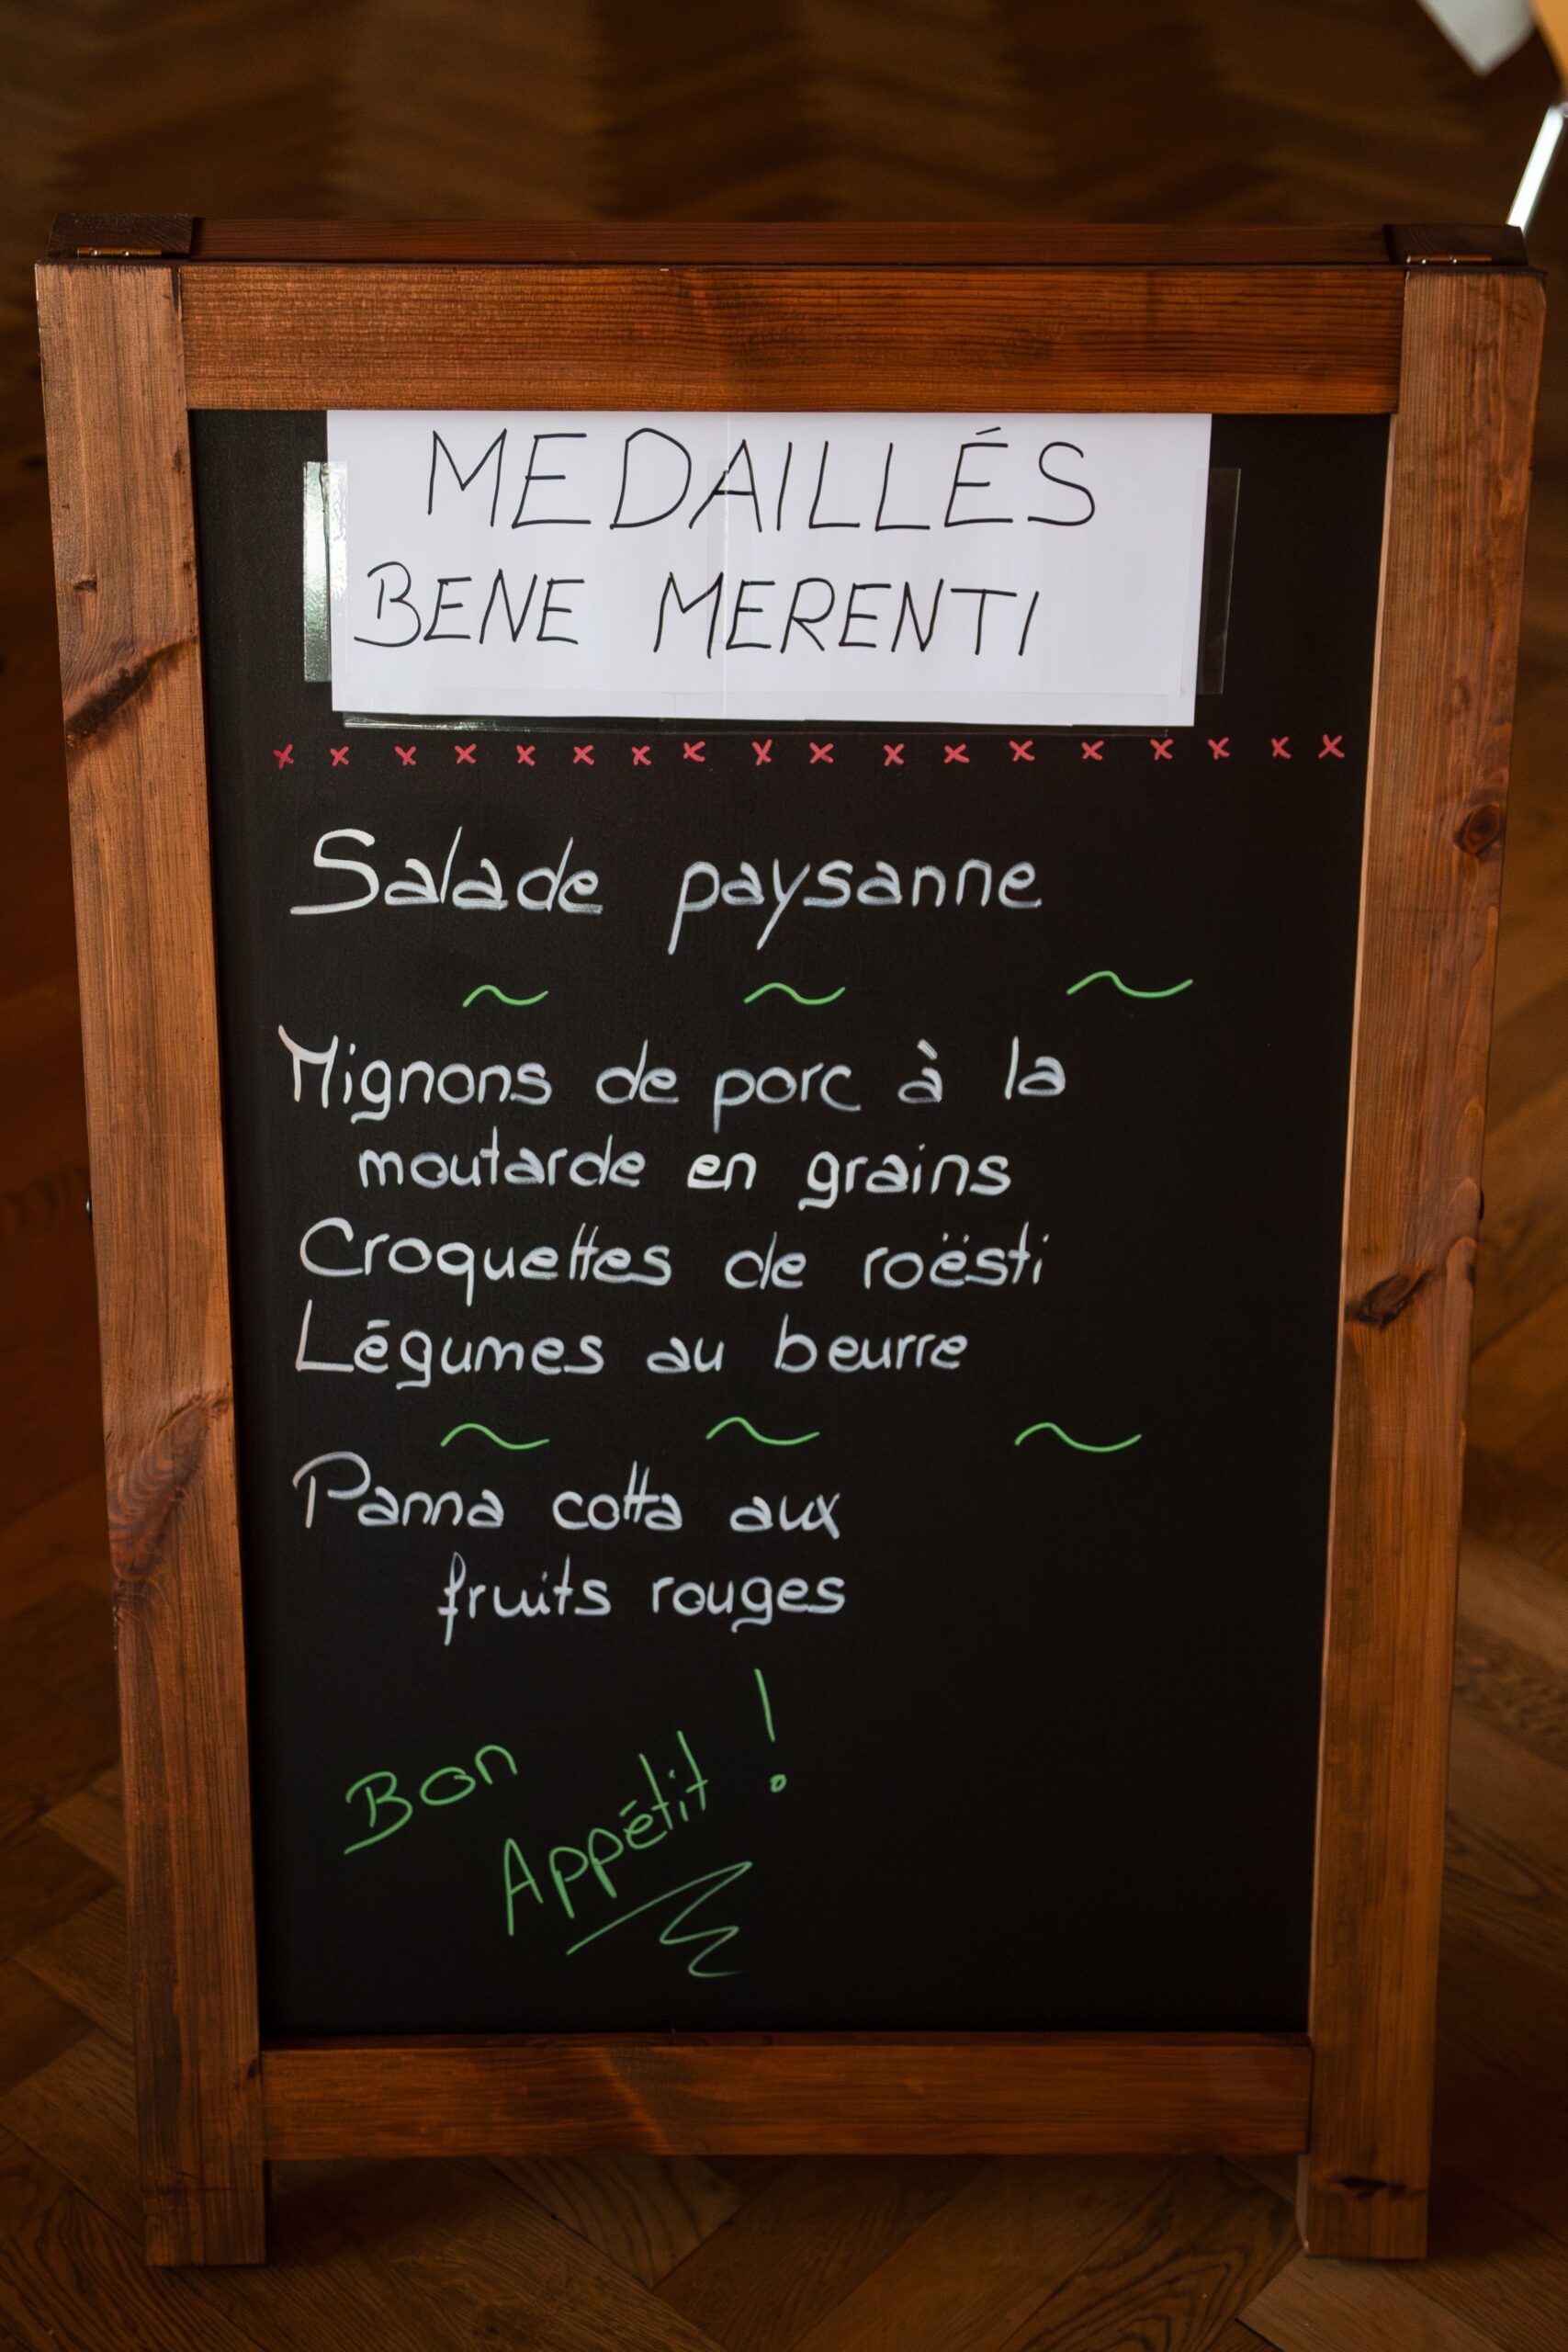 MEDAILLÉS
BENE MERENTI
x x x x x x x x x x x x x x x x x x
Salade paysanne
~ ~ ~
Mignons de porc à la
moutarde en grains
Croquettes de roësti
Légumes au beurre
~ ~ ~
Panna cotta aux
fruits rouges
Bon
Appétit !